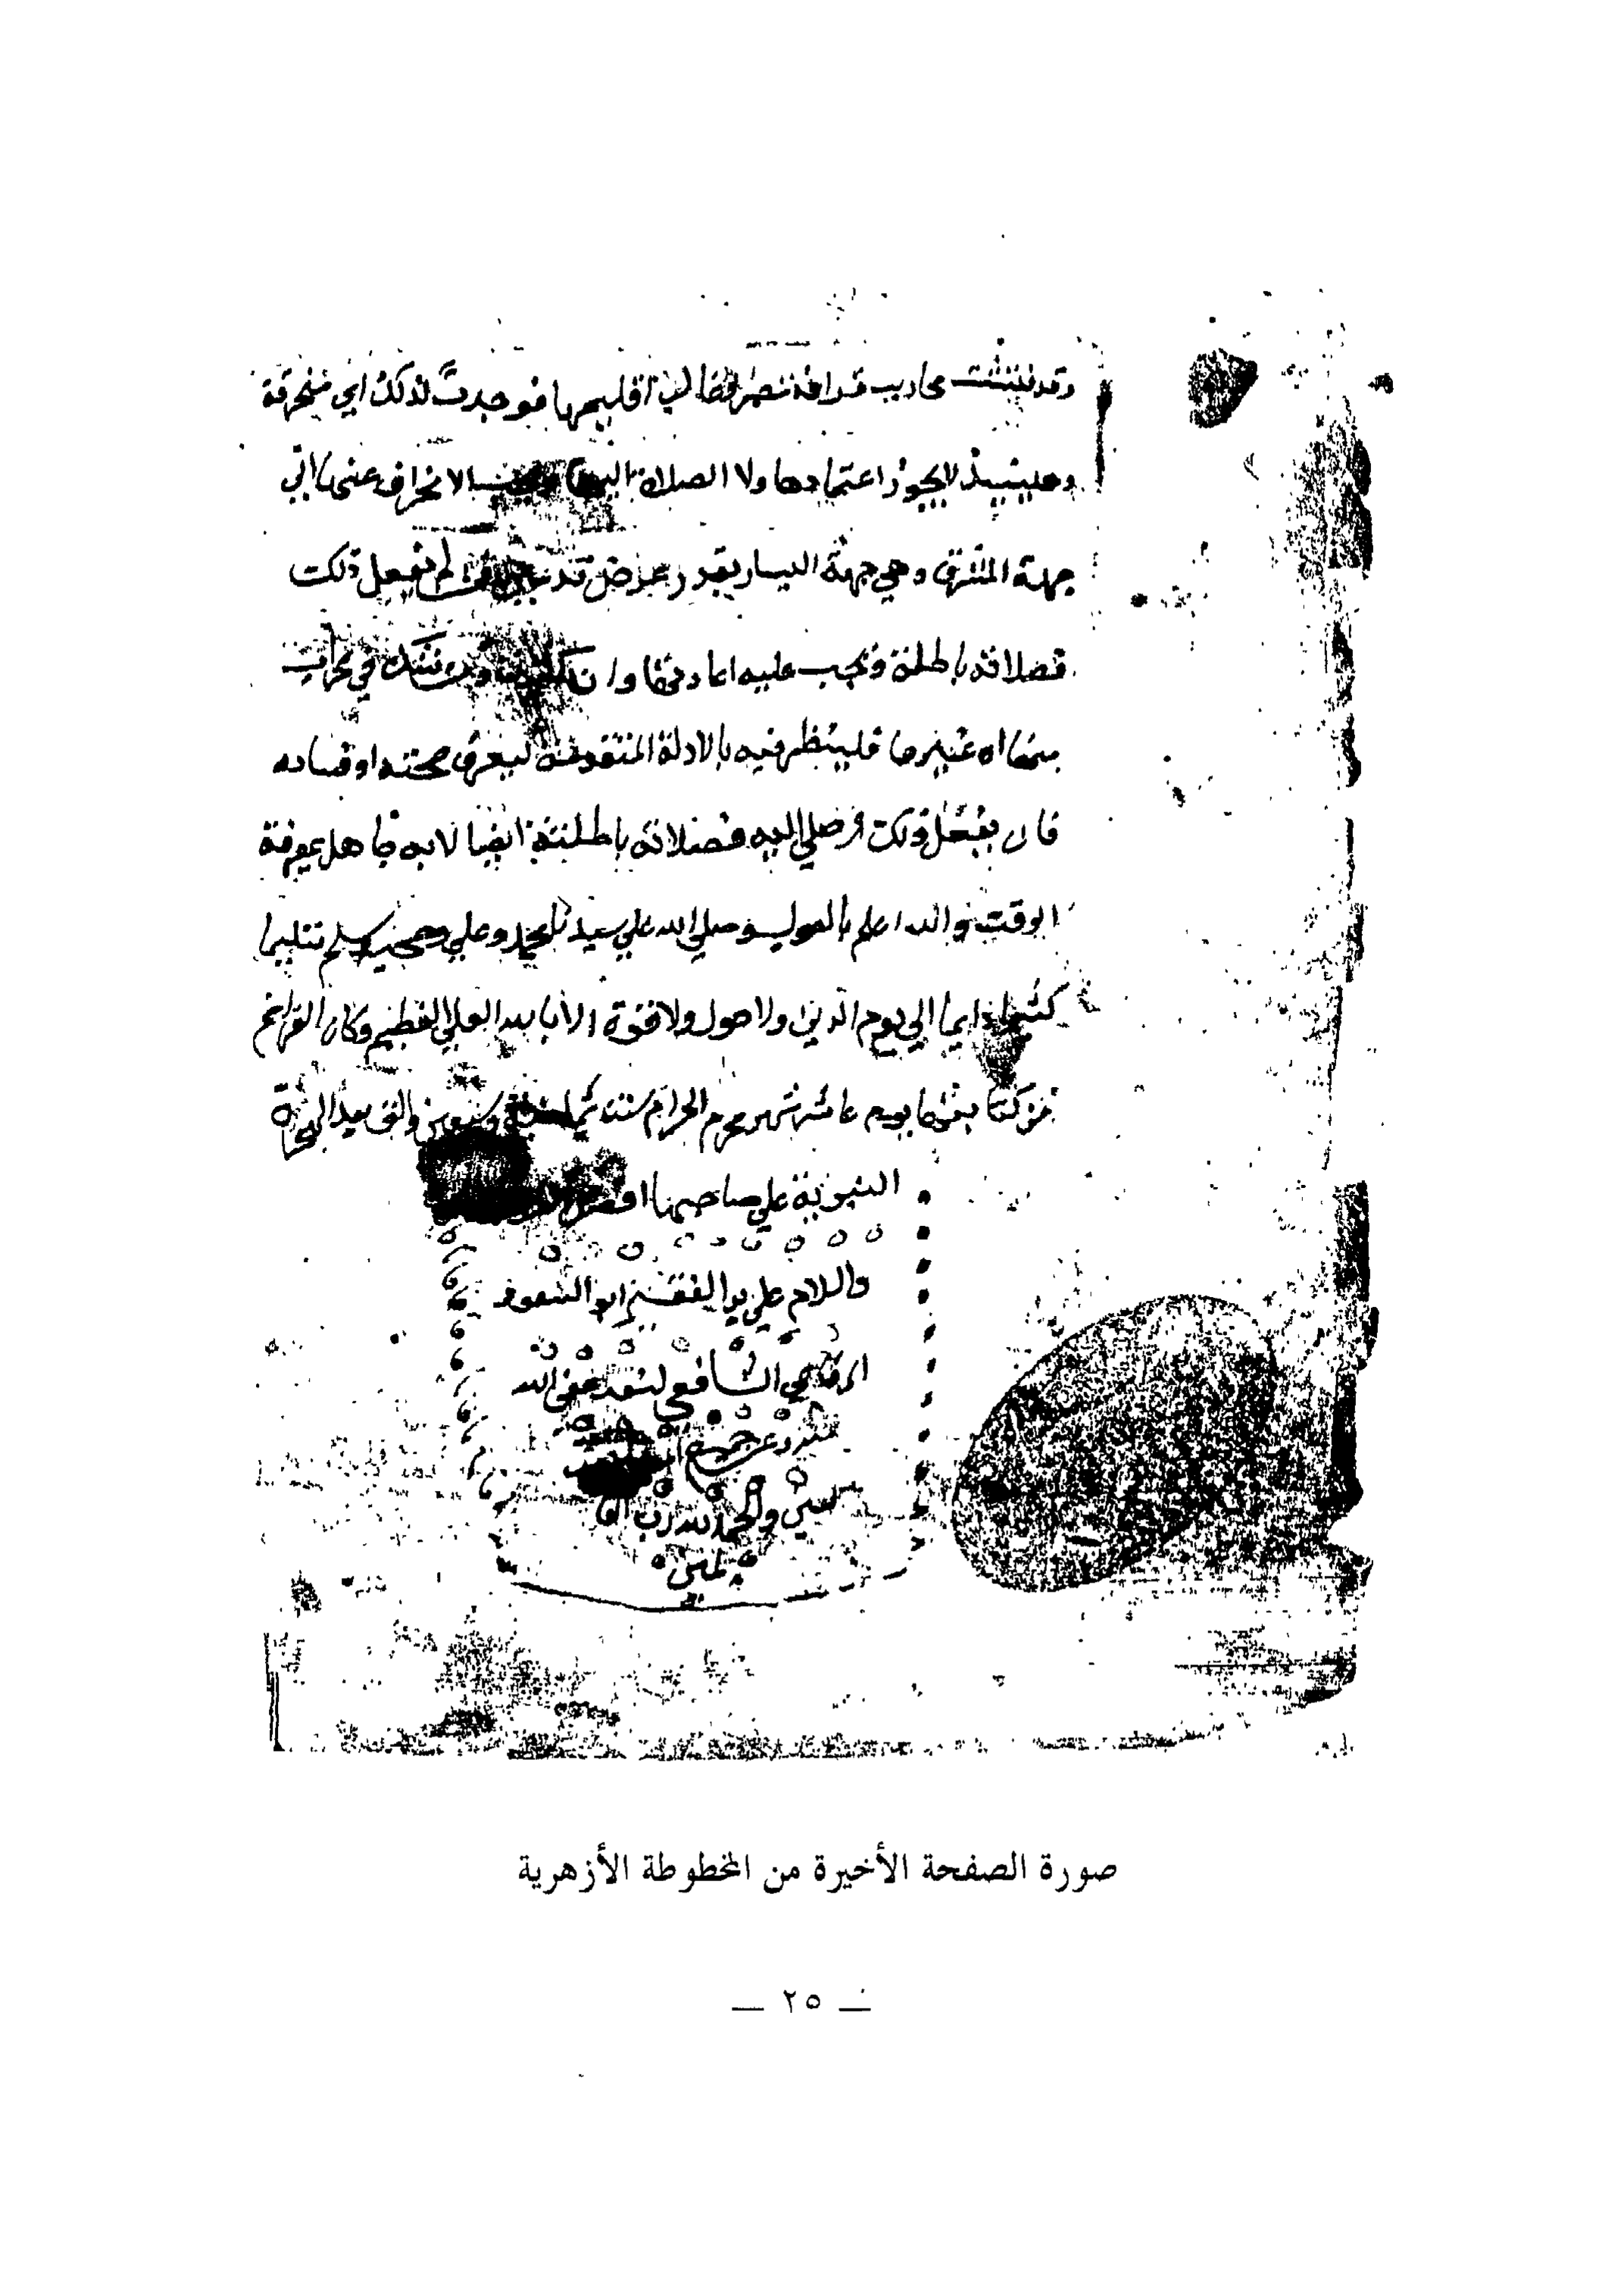 وقد فتشت محاريب قرافة مصر وغالب اقليمها فوجدت كذلك اي منحرفة
وحينيذ لا يجوز اعتمادها ولا الصلاة اليها الانحراف عنها الي
جهة المشرق وهي جهة اليسار بقدر لم يفعل ذلك
فصلاته باطلة وتجب عليه اعادتها وان في محراب
بمكان غيرها فلينظر فيه بالادلة المتقدمة ليعرف صحته او فساده
فان يفعل ذلك وصلي اليه فصلاته باطلة ايضا لانه جاهل بمعرفة
الوقت والله اعلم بالصواب وصلي الله علي سيدنا محمد وعلي وصحبه وسلم تسليما
كثيرا دايما الي يوم الدين ولا حول ولا قوة الا بالله العلي العظيم وكان الفراغ
من كتابتها يوم عاشر شهر محرم الحرام سنة والف بعد الهجرة
النبوية علي صاحبها افضل
والسلام علي يد الفقير ابو السعود
الشافعي لقبه الله
وعن جميع
والحمد لله رب العا
لمين
صورة الصفحة الأخيرة من المخطوطة الأزهرية
— ٢٥ —